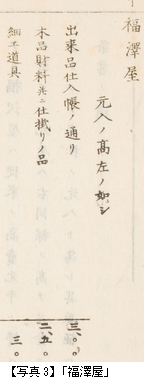 福澤屋
元入ノ高左ノ如シ
出来品仕入帳ノ通り
三〇〇
木品財料并ニ仕掛リノ品
二五〇
細工道具
三〇
【写真3】「福澤屋」